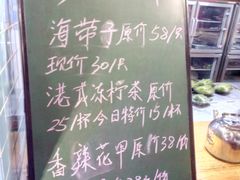 海带子原价58/只
现价30/只
港式冻柠茶原价
25/杯今日特价15/杯
香辣花甲原价38/份